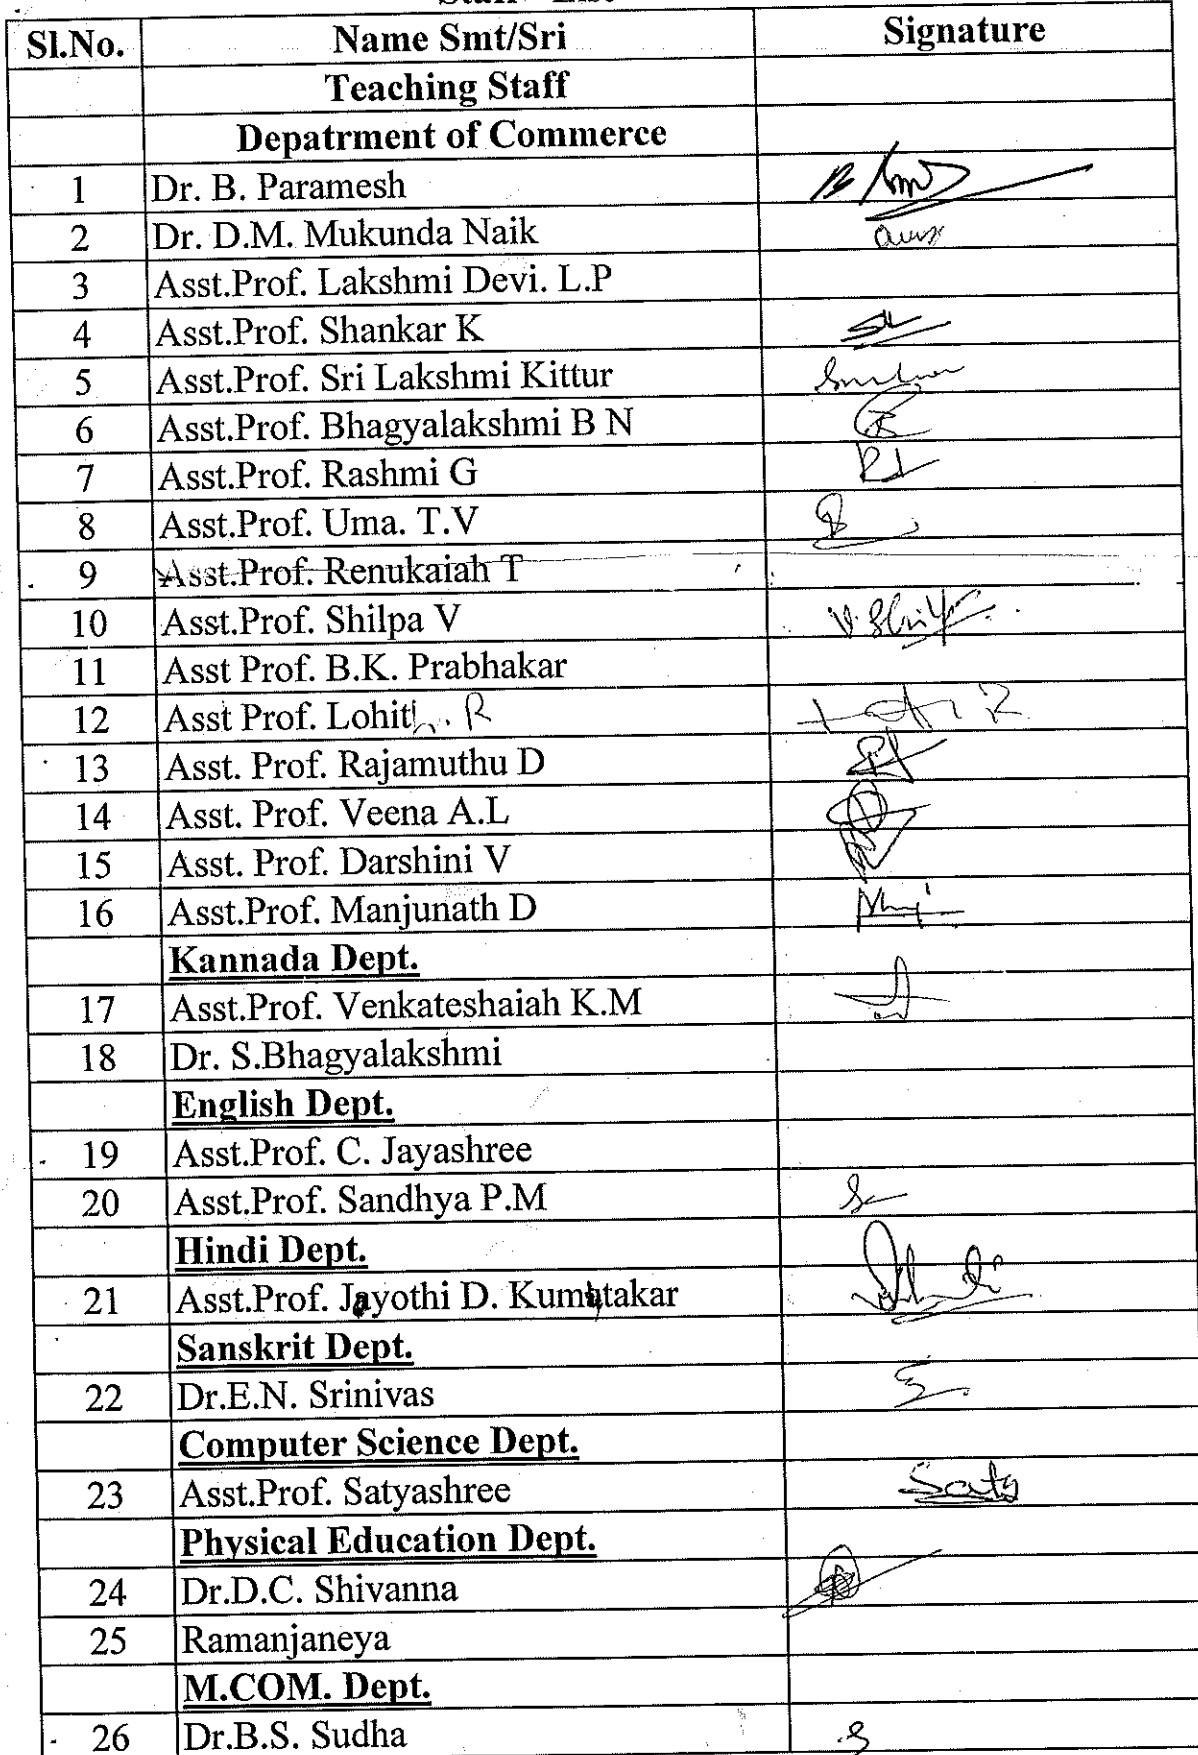 Staff List
Sl.No. Name Smt/Sri Signature
Teaching Staff
Depatrment of Commerce
1 Dr. B. Paramesh
2 Dr. D.M. Mukunda Naik
3 Asst.Prof. Lakshmi Devi. L.P
4 Asst.Prof. Shankar K
5 Asst.Prof. Sri Lakshmi Kittur
6 Asst.Prof. Bhagyalakshmi B N
7 Asst.Prof. Rashmi G
8 Asst.Prof. Uma. T.V
9 Asst.Prof. Renukaiah T
10 Asst.Prof. Shilpa V V. Shilpa
11 Asst Prof. B.K. Prabhakar
12 Asst Prof. Lohith. R
13 Asst. Prof. Rajamuthu D
14 Asst. Prof. Veena A.L
15 Asst. Prof. Darshini V
16 Asst.Prof. Manjunath D
Kannada Dept.
17 Asst.Prof. Venkateshaiah K.M
18 Dr. S.Bhagyalakshmi
English Dept.
19 Asst.Prof. C. Jayashree
20 Asst.Prof. Sandhya P.M
Hindi Dept.
21 Asst.Prof. Jayothi D. Kumatakar
Sanskrit Dept.
22 Dr.E.N. Srinivas
Computer Science Dept.
23 Asst.Prof. Satyashree Saty
Physical Education Dept.
24 Dr.D.C. Shivanna
25 Ramanjaneya
M.COM. Dept.
26 Dr.B.S. Sudha